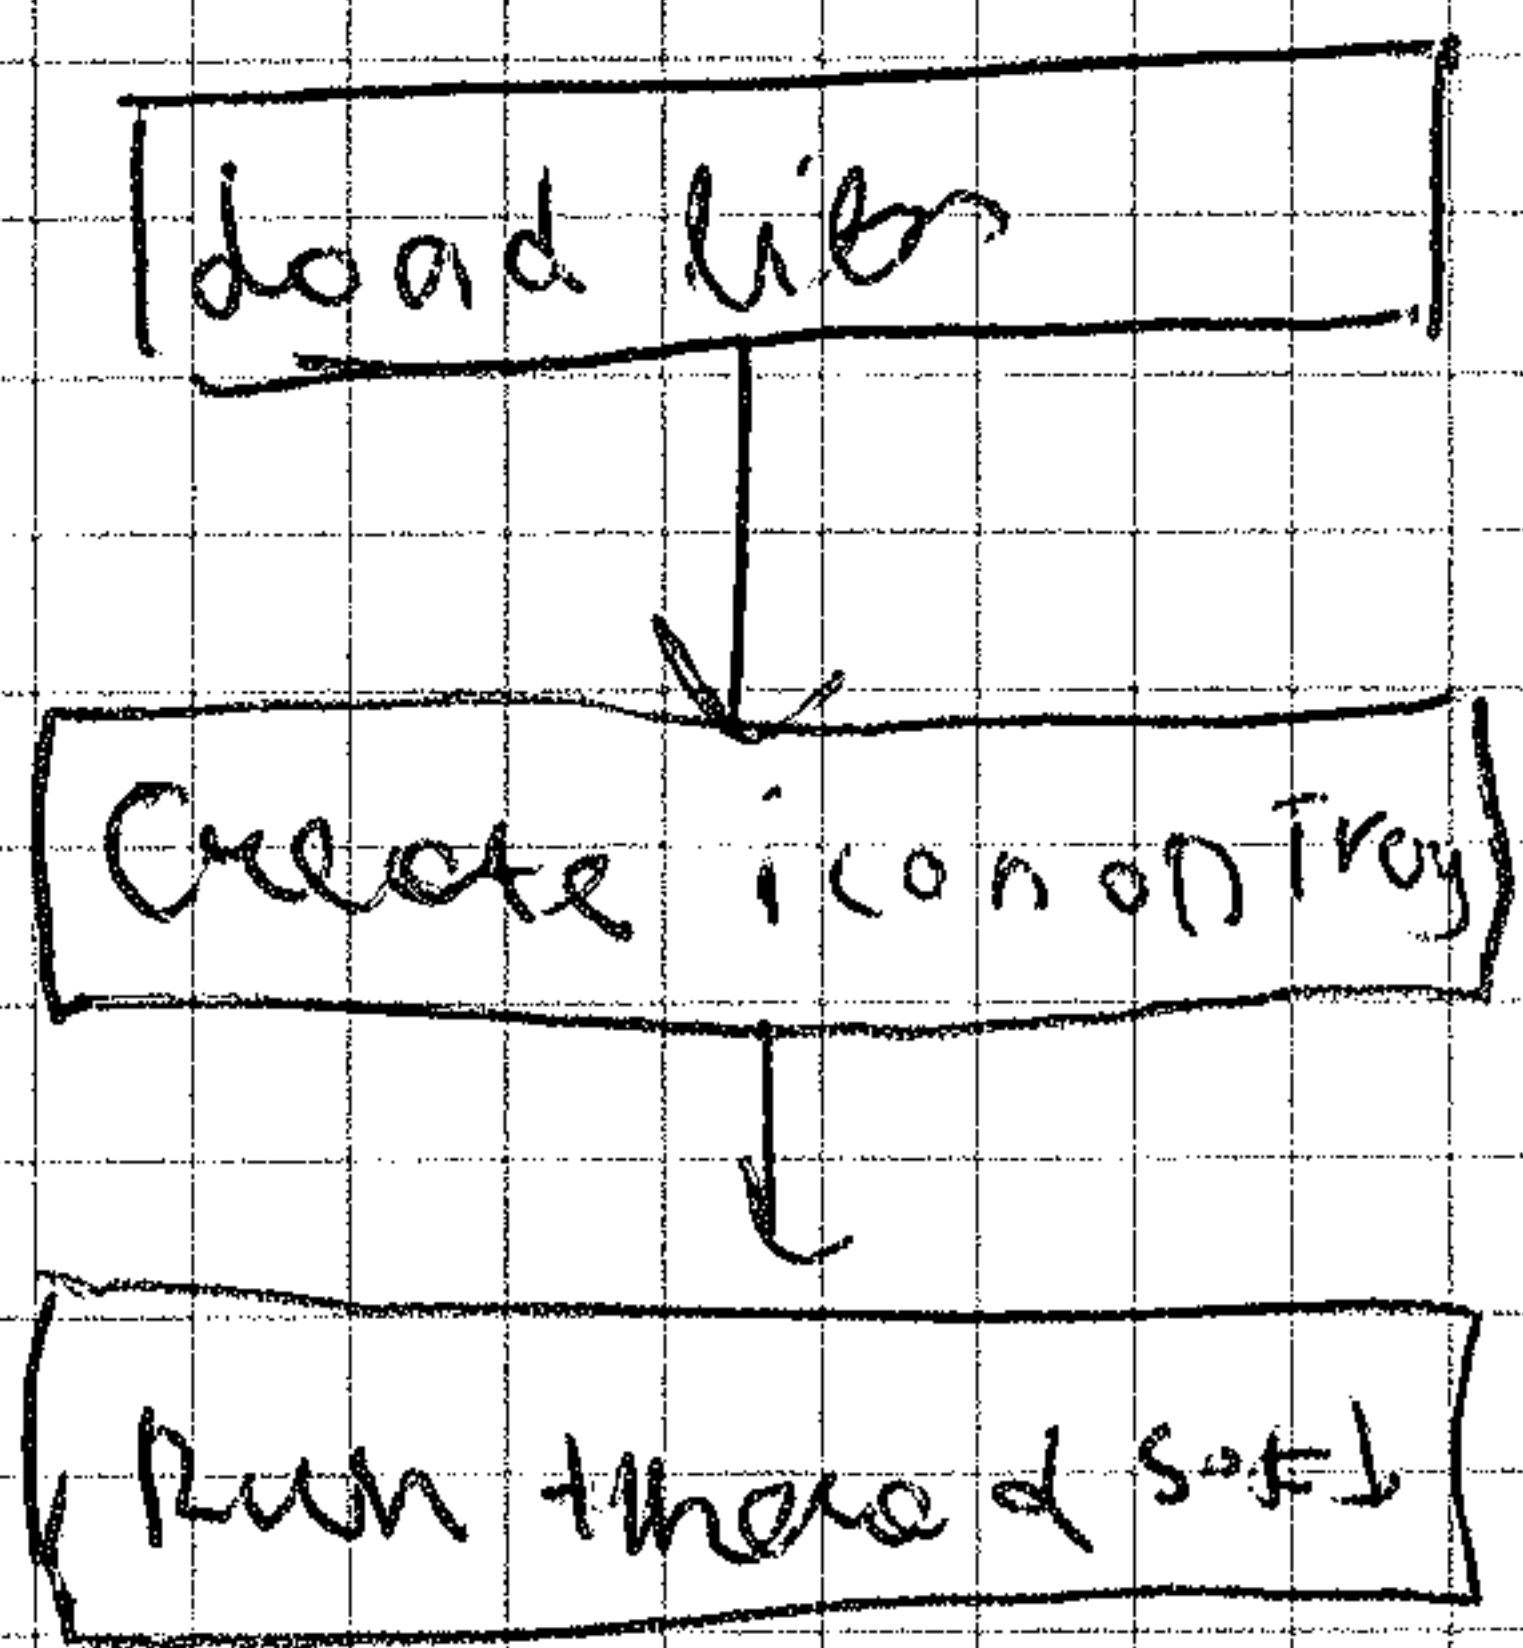 Load libs
Create icon on Tray
Run thread